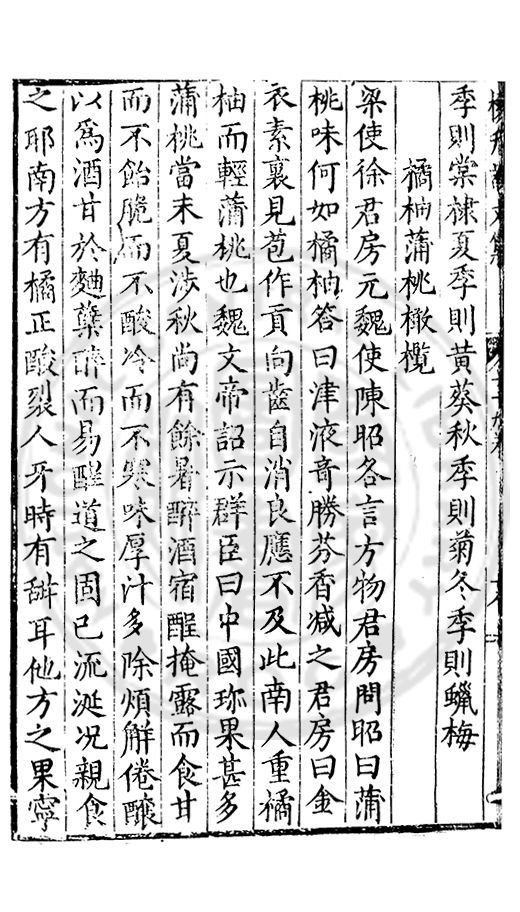 季則棠棣夏季則黃葵秋季則菊冬季則蠟梅
橘柚蒲桃橄欖
梁使徐君房元魏使陳昭各言方物君房問昭曰蒲
桃味何如橘柚答曰津液奇勝芬香减之君房曰金
衣素裏見苞作貢向齒自消良應不及此南人重橘
柚而輕蒲桃也魏文帝詔示群臣曰中國珎果甚多
蒲桃當末夏涉秋尚有餘暑醉酒宿酲掩露而食甘
而不飴脆而不酸冷而不寒味厚汁多除煩解倦釀
以爲酒甘於麯糵醉而易醒道之固已流涎况親食
之耶南方有橘正酸裂人牙時有甜耳他方之果寧